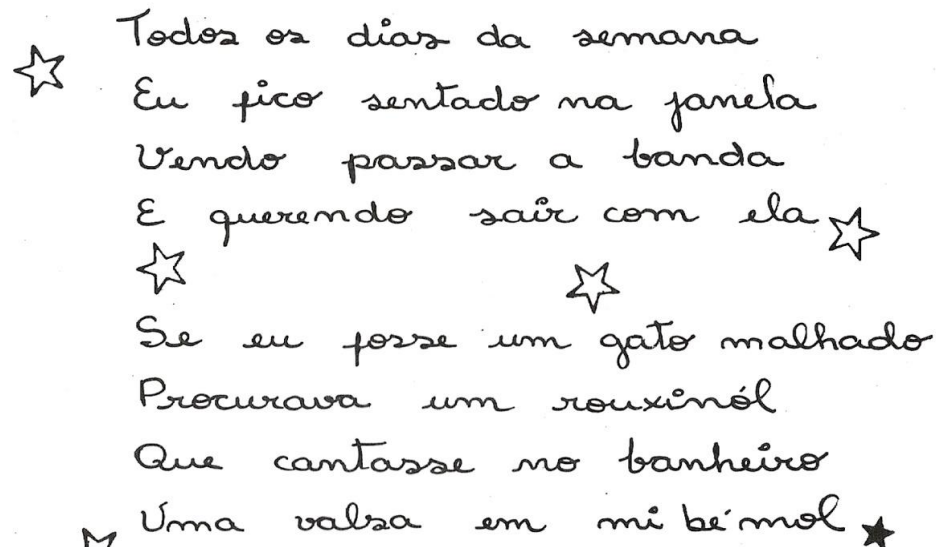 Todos os dias da semana
Eu fico sentado na janela
Vendo passar a banda
E querendo sair com ela
Se eu fosse um gato malhado
Procurava um rouxinól
Que cantasse no banheiro
Uma valsa em mi bé mol